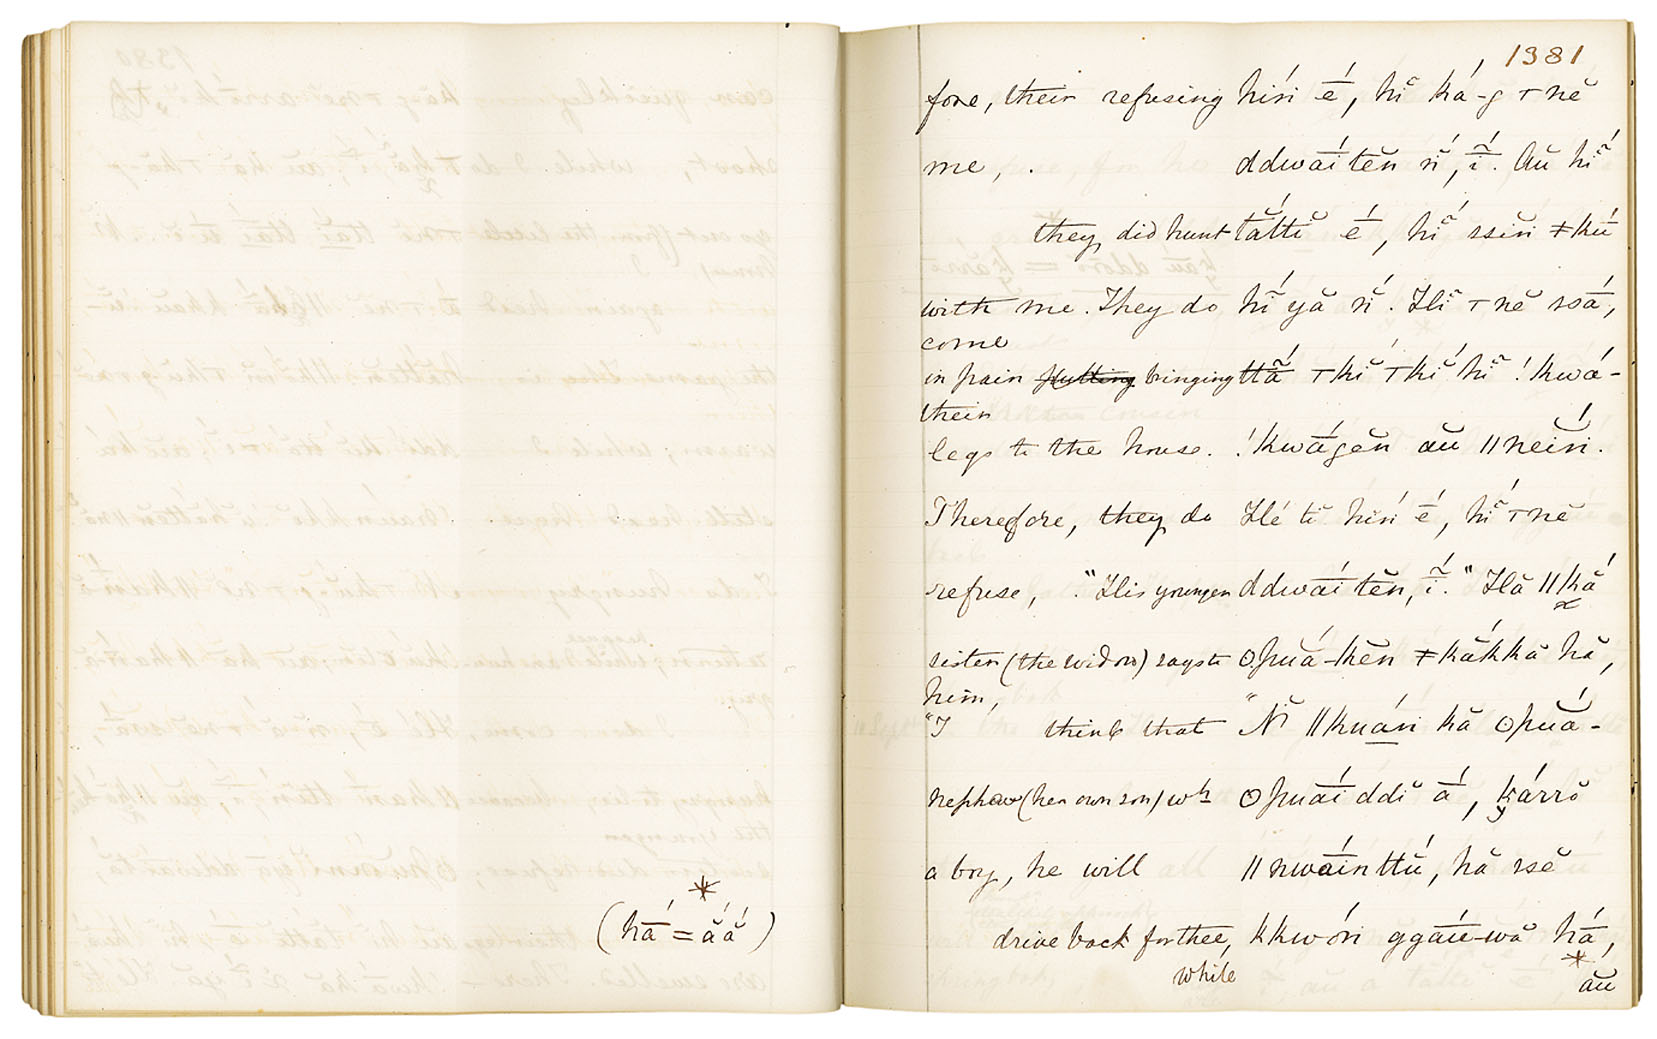 (hā́ = ắắ)
*
1381
fore, their refusing hín̄i ḗ, hĭ ká-g ⊤nĕ
me, . ddwā́ĭtĕn n̆, ī̃́. Aŭ hĭ̃
they did hunt tắttĭ ḗ, hĭ̃ ssin̄i ≠kū́
with me. They do hĭ̃́ yă n̆́. Hĭ̃ ⊤nĕ ssā́,
come
in pain putting bringing ttā̃́ ⊤kĭ́ ⊤kĭ́ hĭ̃ !kwá-
their
legs to the house. !kwā́gĕn aŭ ǁneín̄i.
Therefore, they do Hé tĭ hín̄i ḗ, hĭ̃́ ⊤nĕ
refuse, "His younger ddwā́ĭtĕn, ī̃́." Hă ǁkắ
sister (the widow) says to ʘpuá-kĕn ≠kắkkă hă,
him,
"I think that "N̆ ǁkuán̄i kă ʘpuắ-
nephew (her own son) wh ʘpuā́ĭ ddĭ ā́, kárrŏ
a boy, he will ǁnwā́inttŭ, hă ssĕ
drive back for thee, kkwón̄i ggā́ŭ-wă hā́,
*
while aŭ